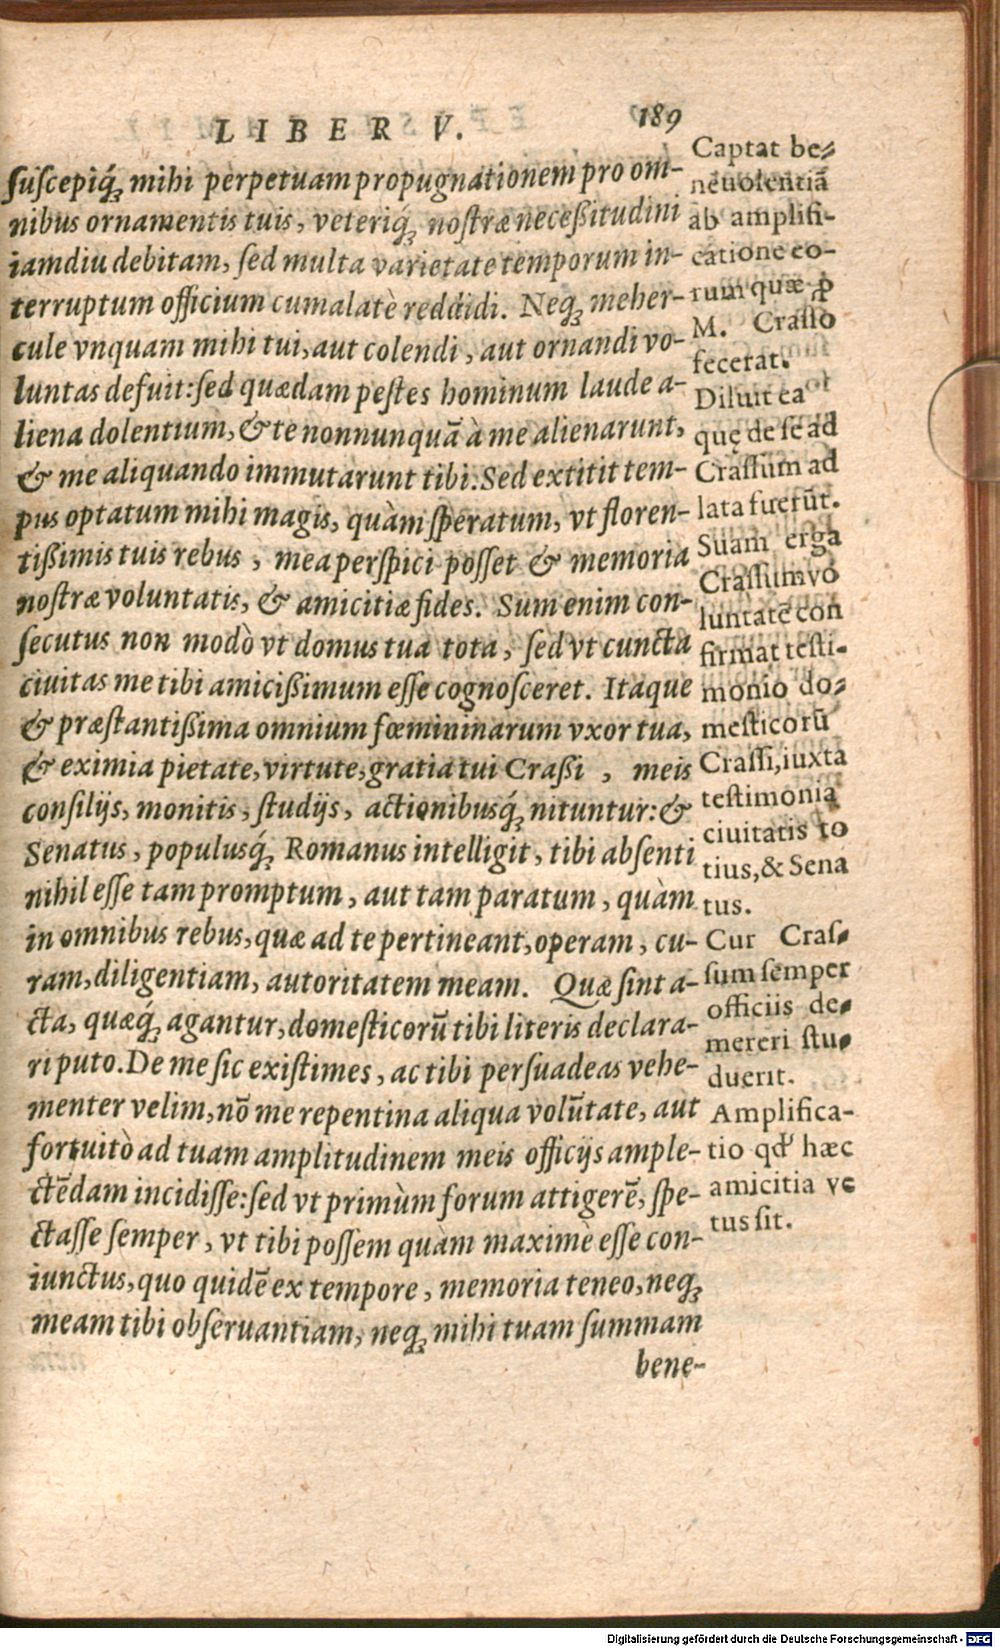 LIBER V. 189
suscepiq́ꝫ mihi perpetuam propugnationem pro om-
nibus ornamentis tuis, veteriq́ꝫ nostræ neceßitudini
iamdiu debitam, sed multa varietate temporum in-
terruptum officium cumalatè reddidi. Neqꝫ meher-
cule vnquam mihi tui, aut colendi, aut ornandi vo-
luntas defuit: sed quædam pestes hominum laude a-
liena dolentium, & te nonnunquā à me alienarunt,
& me aliquando immutarunt tibi. Sed extitit tem-
pus optatum mihi magis, quàm speratum, vt floren-
tißimis tuis rebus, mea perspici posset & memoria
nostræ voluntatis, & amicitiæ fides. Sum enim con-
secutus non modò vt domus tua tota, sed vt cuncta
ciuitas me tibi amicißimum esse cognosceret. Itaque
& præstantißima omnium fœmininarum vxor tua,
& eximia pietate, virtute, gratia tui Craßi, meis
consilijs, monitis, studijs, actionibusq́ꝫ nituntur: &
Senatus, populusq́ꝫ Romanus intelligit, tibi absenti
nihil esse tam promptum, aut tam paratum, quàm
in omnibus rebus, quæ ad te pertineant, operam, cu-
ram, diligentiam, autoritatem meam. Quæ sint a-
cta, quæq́ꝫ agantur, domesticorū tibi literis declara-
ri puto. De me sic existimes, ac tibi persuadeas vehe-
menter velim, nō me repentina aliqua volūtate, aut
fortuitò ad tuam amplitudinem meis officijs ample-
ctēdam incidisse: sed vt primùm forum attigerē, spe-
ctasse semper, vt tibi possem quàm maximè esse con-
iunctus, quo quidē ex tempore, memoria teneo, neqꝫ
meam tibi obseruantiam, neqꝫ mihi tuam summam
bene-
Captat be-
neuolentiā
ab amplifi-
catione eo-
rum quæ ꝓ
M. Crasso
fecerat.
Diluit ea
quę de se ad
Crassum ad
lata fuerūt.
Suam erga
Crassum vo
luntatē con
firmat testi-
monio do-
mesticorū
Crassi, iuxta
testimonia
ciuitatis to
tius, & Sena
tus.
Cur Cras-
sum semper
officiis de-
mereri stu-
duerit.
Amplifica-
tio qđ hæc
amicitia ve
tus sit.
Digitalisierung gefördert durch die Deutsche Forschungsgemeinschaft - DFG